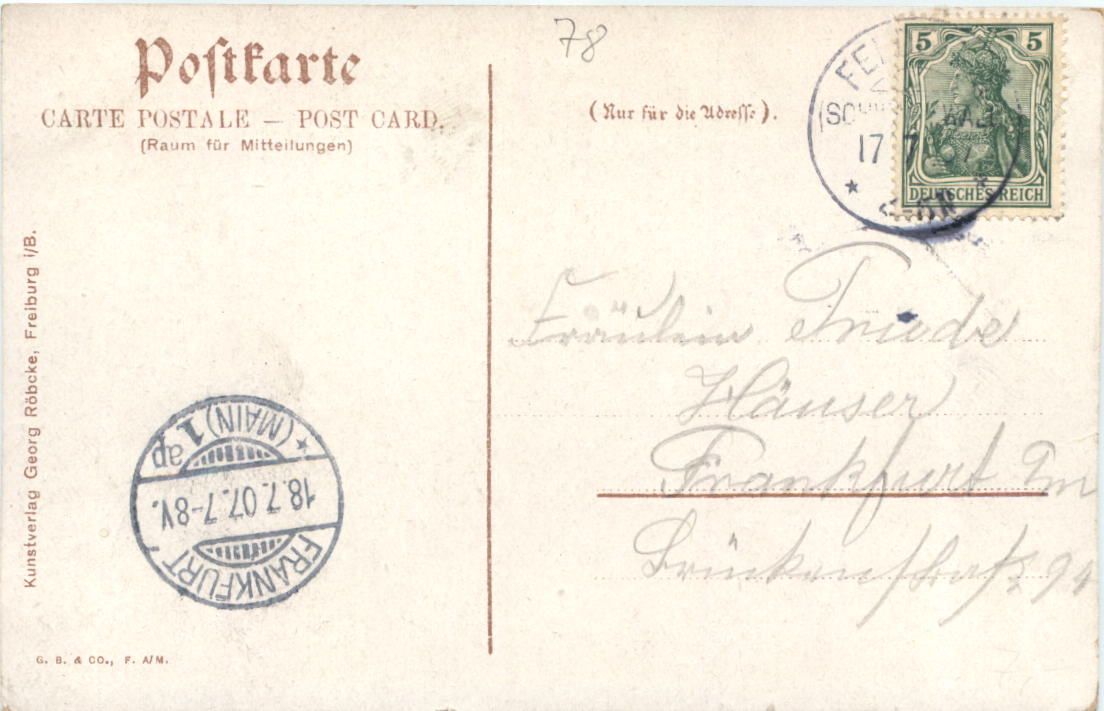 78
Postkarte
CARTE POSTALE — POST CARD.
(Raum für Mitteilungen)
(Nur für die Adresse).
5 5
DEUTSCHES REICH
17 7
Fräulein Friede
Häuser
Frankfurt
Brückenstraße 94
Kunstverlag Georg Röbcke, Freiburg i/B.
FRANKFURT
18.7.07.7-8V.
*(MAIN) 1 ap
G. B. & CO., F. A/M.